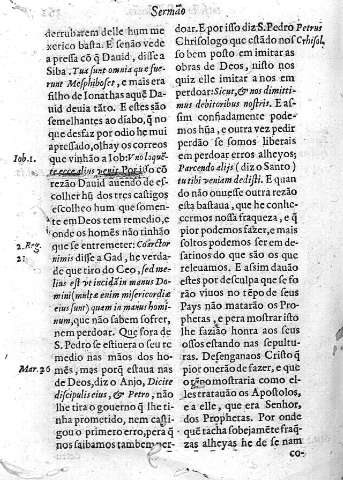 Sermão
derrubarem delle hum me
xerico basta. E senão vede
a pressa cõ q̃ Dauid, disse a
Siba. Tua sunt omnia quæ fue-
runt Mesphiboset, e mais era
filho de Ionathas aquẽ Da-
uid deuia tãto. E estes são
semelhantes ao diabo, q̃ no
que desfaz por odio he mui
apressado, olhay os correos
Iob. 1.
que vinhão a Iob: Vno loquẽ-
te ecce alius venit. Por isso cõ
rezão Dauid auendo de es-
colher hũ dos tres castigos
escolheo hum que somen-
te em Deos tem remedio, e
onde os homẽs não tinhão
2. Reg.
que se entremeter: Coarctor
21
nimis disse a Gad, he verda-
de que tiro do Ceo, sed me-
lius est vt incidã in manus Do-
mini (multæ enim misericordiæ
eius sunt) quam in manus homi-
num, que não sabem sofrer,
nem perdoar. Que fora de
S. Pedro se estiuera o seu re
medio nas mãos dos ho-
Mar. 26
mẽs, mas porq̃ estaua nas
de Deos, diz o Anjo, Dicite
discipulis eius, & Petro, não
lhe tira o gouerno q̃ lhe ti-
nha prometido, nem casti-
gou o primeiro erro, pera q̃
nos saibamos tambem per-
doar. E por isso diz S. Pedro
Petrus
Chrisologo que està do nos
Crhisol.
so bem posto em imitar as
obras de Deos, nisto nos
quiz elle imitar a nos em
perdoar: Sicut, & nos dimitti-
mus debitoribus nostris. E as-
sim confiadamente pode-
mos hũa, e outra vez pedir
perdão se somos liberais
em perdoar erros alheyos;
Parcendo alijs (diz o Santo)
tu tibi veniam dedisti. E quan
do não ouuesse outra rezão
esta bastaua, que he conhe-
cermos nossa fraqueza, e q̃
pior podemos fazer, e mais
soltos podemos ser em de-
satinos do que são os que
releuamos. E assim dauão
estes por desculpa que se fo
rão viuos no tẽpo de seus
Pays não matarão os Pro-
phetas, e pera mostrar isto
lhe fazião honra aos seus
ossos estando nas sepultu-
ras. Desenganaos Cristo q̃
pior ouuerão de fazer, e que
o tẽpo mostraria como el-
les tratauão os Apostolos,
e a elle, que era Senhor,
dos Prophetas. Por onde
que tacha sobejamẽte fraq̃-
zas alheyas he de se nam
co-